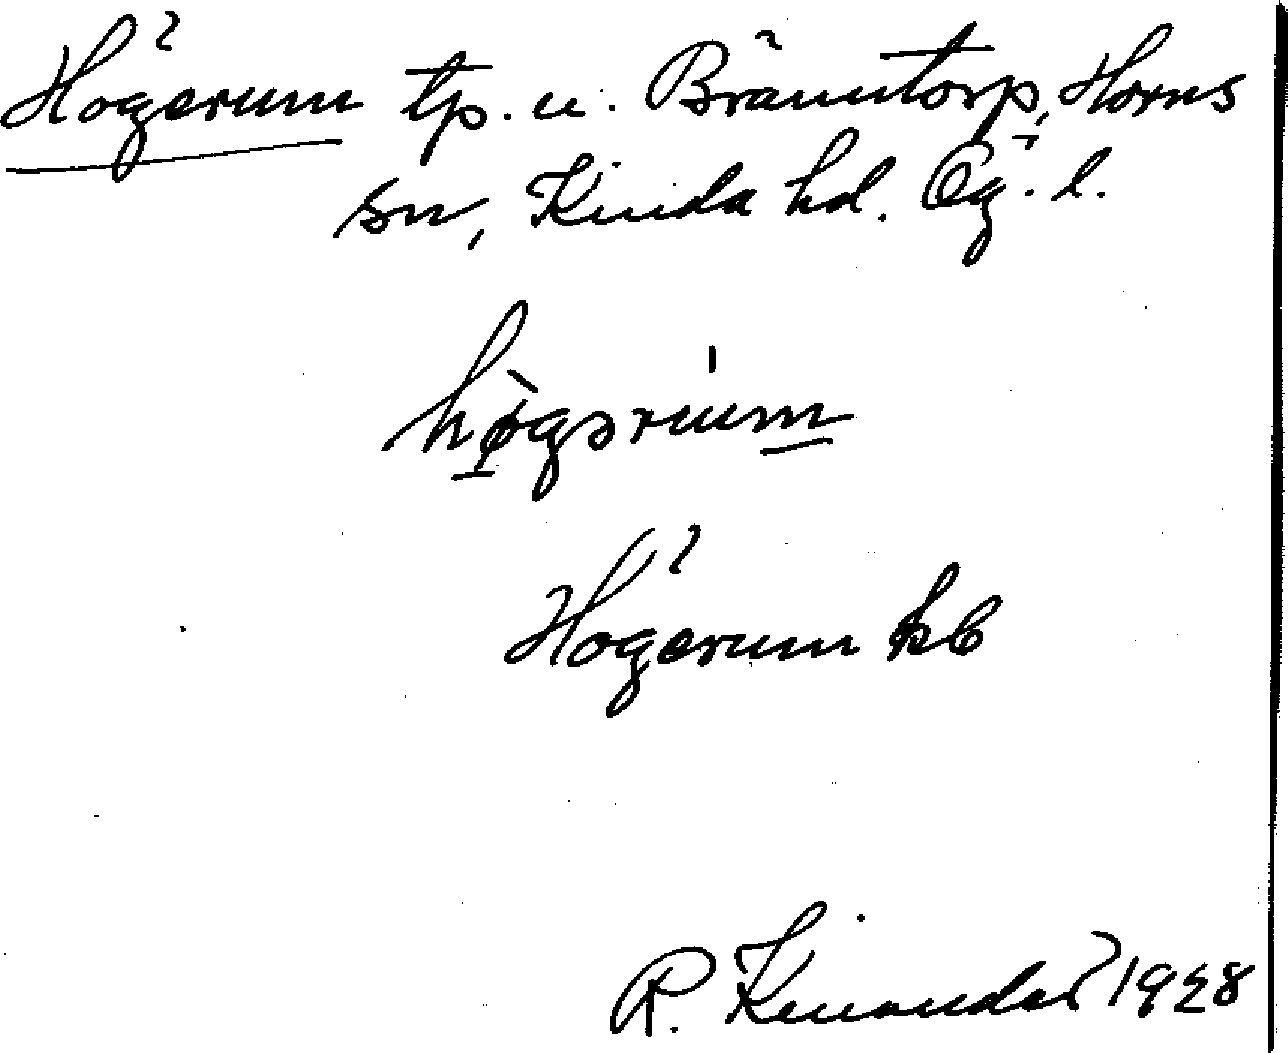 Högerum tp. u. Bränntorp, Horns
sn, Kinda hd. Ög. l.
Högerum kb
R. Kinander 1928